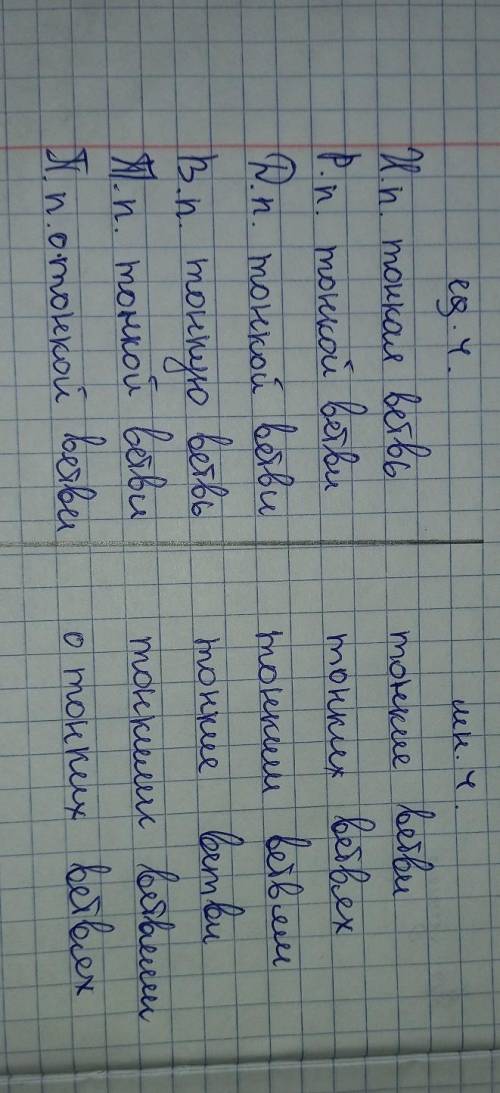 ед. ч. мн. ч.
И.п. тонкая ветвь тонкие ветви
Р.п. тонкой ветви тонких ветвях
Д.п. тонкой ветви тонким ветвям
В.п. тонкую ветвь тонкие ветви
Т.п. тонкой ветви тонкими ветвями
П.п. о тонкой ветви о тонких ветвях